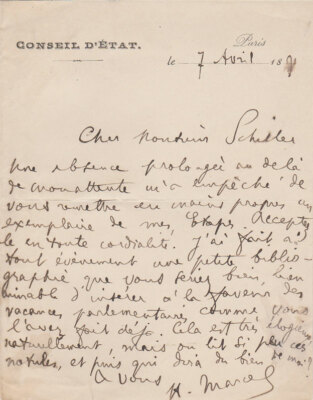 CONSEIL D'ÉTAT.
Paris
le 7 Avril 18
Cher Monsieur Schiller
Une absence prolongée au delà
de mon attente m'a empêché de
vous remettre en mains propres un
exemplaire de mes Etapes. Acceptez
le en toute cordialité. J'ai fait à
tout événement une petite biblio-
graphie que vous seriez bien, bien
aimable d'insérer à la faveur des
vacances parlementaires comme vous
l'avez fait déjà. Cela est très élogieux
naturellement, mais on lit si peu ces
notules, et puis qui dira du bien de moi?
à vous H. Marcel